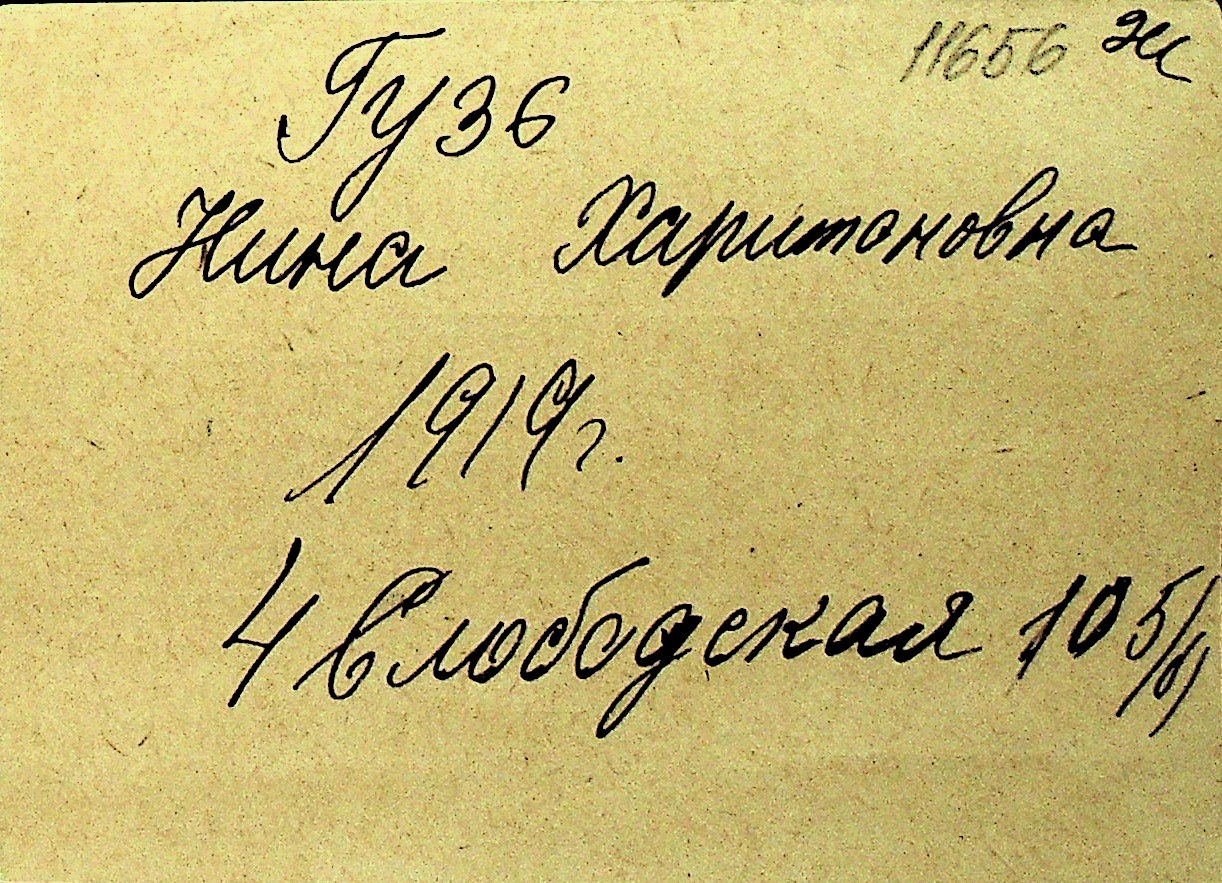 11656 Ж
Гузь
Нина Харитоновна
1919г.
4 Слободская 105/